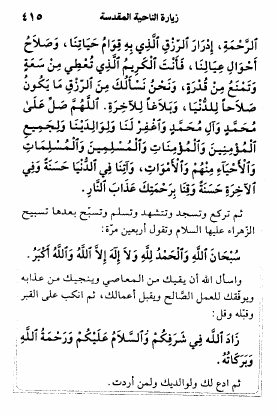 زيارة الناحية المقدسة ٤١٥
ٱلرَّحْمَةِ، إِدْرَارَ ٱلرِّزْقِ ٱلَّذِي بِهِ قِوَامُ حَيَاتِنَا، وَصَلَاحُ
أَحْوَالِ عِيَالِنَا، فَأَنْتَ ٱلْكَرِيمُ ٱلَّذِي تُعْطِي مِنْ سَعَةٍ
وَتَمْنَعُ مِنْ قُدْرَةٍ، وَنَحْنُ نَسْأَلُكَ مِنَ ٱلرِّزْقِ مَا يَكُونُ
صَلَاحاً لِلدُّنْيَا، وَبَلَاغاً لِلْآخِرَةِ. ٱللَّهُمَّ صَلِّ عَلَىٰ
مُحَمَّدٍ وَآلِ مُحَمَّدٍ وَٱغْفِرْ لَنَا وَلِوَالِدَيْنَا وَلِجَمِيعِ
ٱلْمُؤْمِنِينَ وَٱلْمُؤْمِنَاتِ وَٱلْمُسْلِمِينَ وَٱلْمُسْلِمَاتِ
وَٱلْأَحْيَاءِ مِنْهُمْ وَٱلْأَمْوَاتِ، وَآتِنَا فِي ٱلدُّنْيَا حَسَنَةً وَفِي
ٱلْآخِرَةِ حَسَنَةً وَقِنَا بِرَحْمَتِكَ عَذَابَ ٱلنَّارِ.
ثم تركع وتسجد وتتشهد وتسلم وتسبّح بعدها تسبيح
الزهراء عليها السلام وتقول أربعين مرّة:
سُبْحَانَ ٱللَّهِ وَٱلْحَمْدُ لِلَّهِ وَلَا إِلَهَ إِلَّا ٱللَّهُ وَٱللَّهُ أَكْبَرُ.
واسأل الله أن يقيك من المعاصي وينجيك من عذابه
ويوفّقك للعمل الصّالح ويقبل أعمالك، ثم انكب على القبر
وقبّله وقل:
زَادَ ٱللَّهُ فِي شَرَفِكُمْ وَٱلسَّلَامُ عَلَيْكُمْ وَرَحْمَةُ ٱللَّهِ
وَبَرَكَاتُهُ.
ثم ادع لك ولوالديك ولمن أردت.